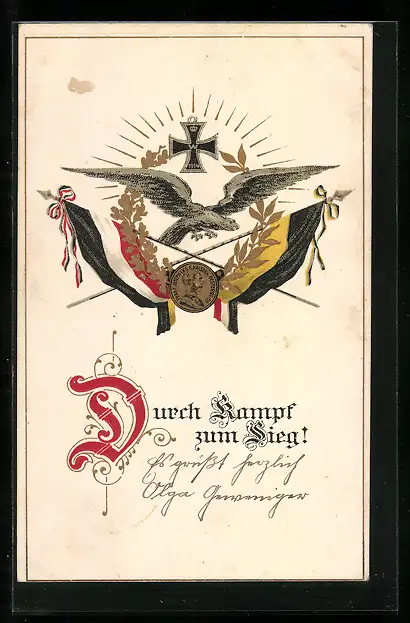 Durch Kampf
zum Sieg!
Es grüßt herzlich
Olga Geweniger